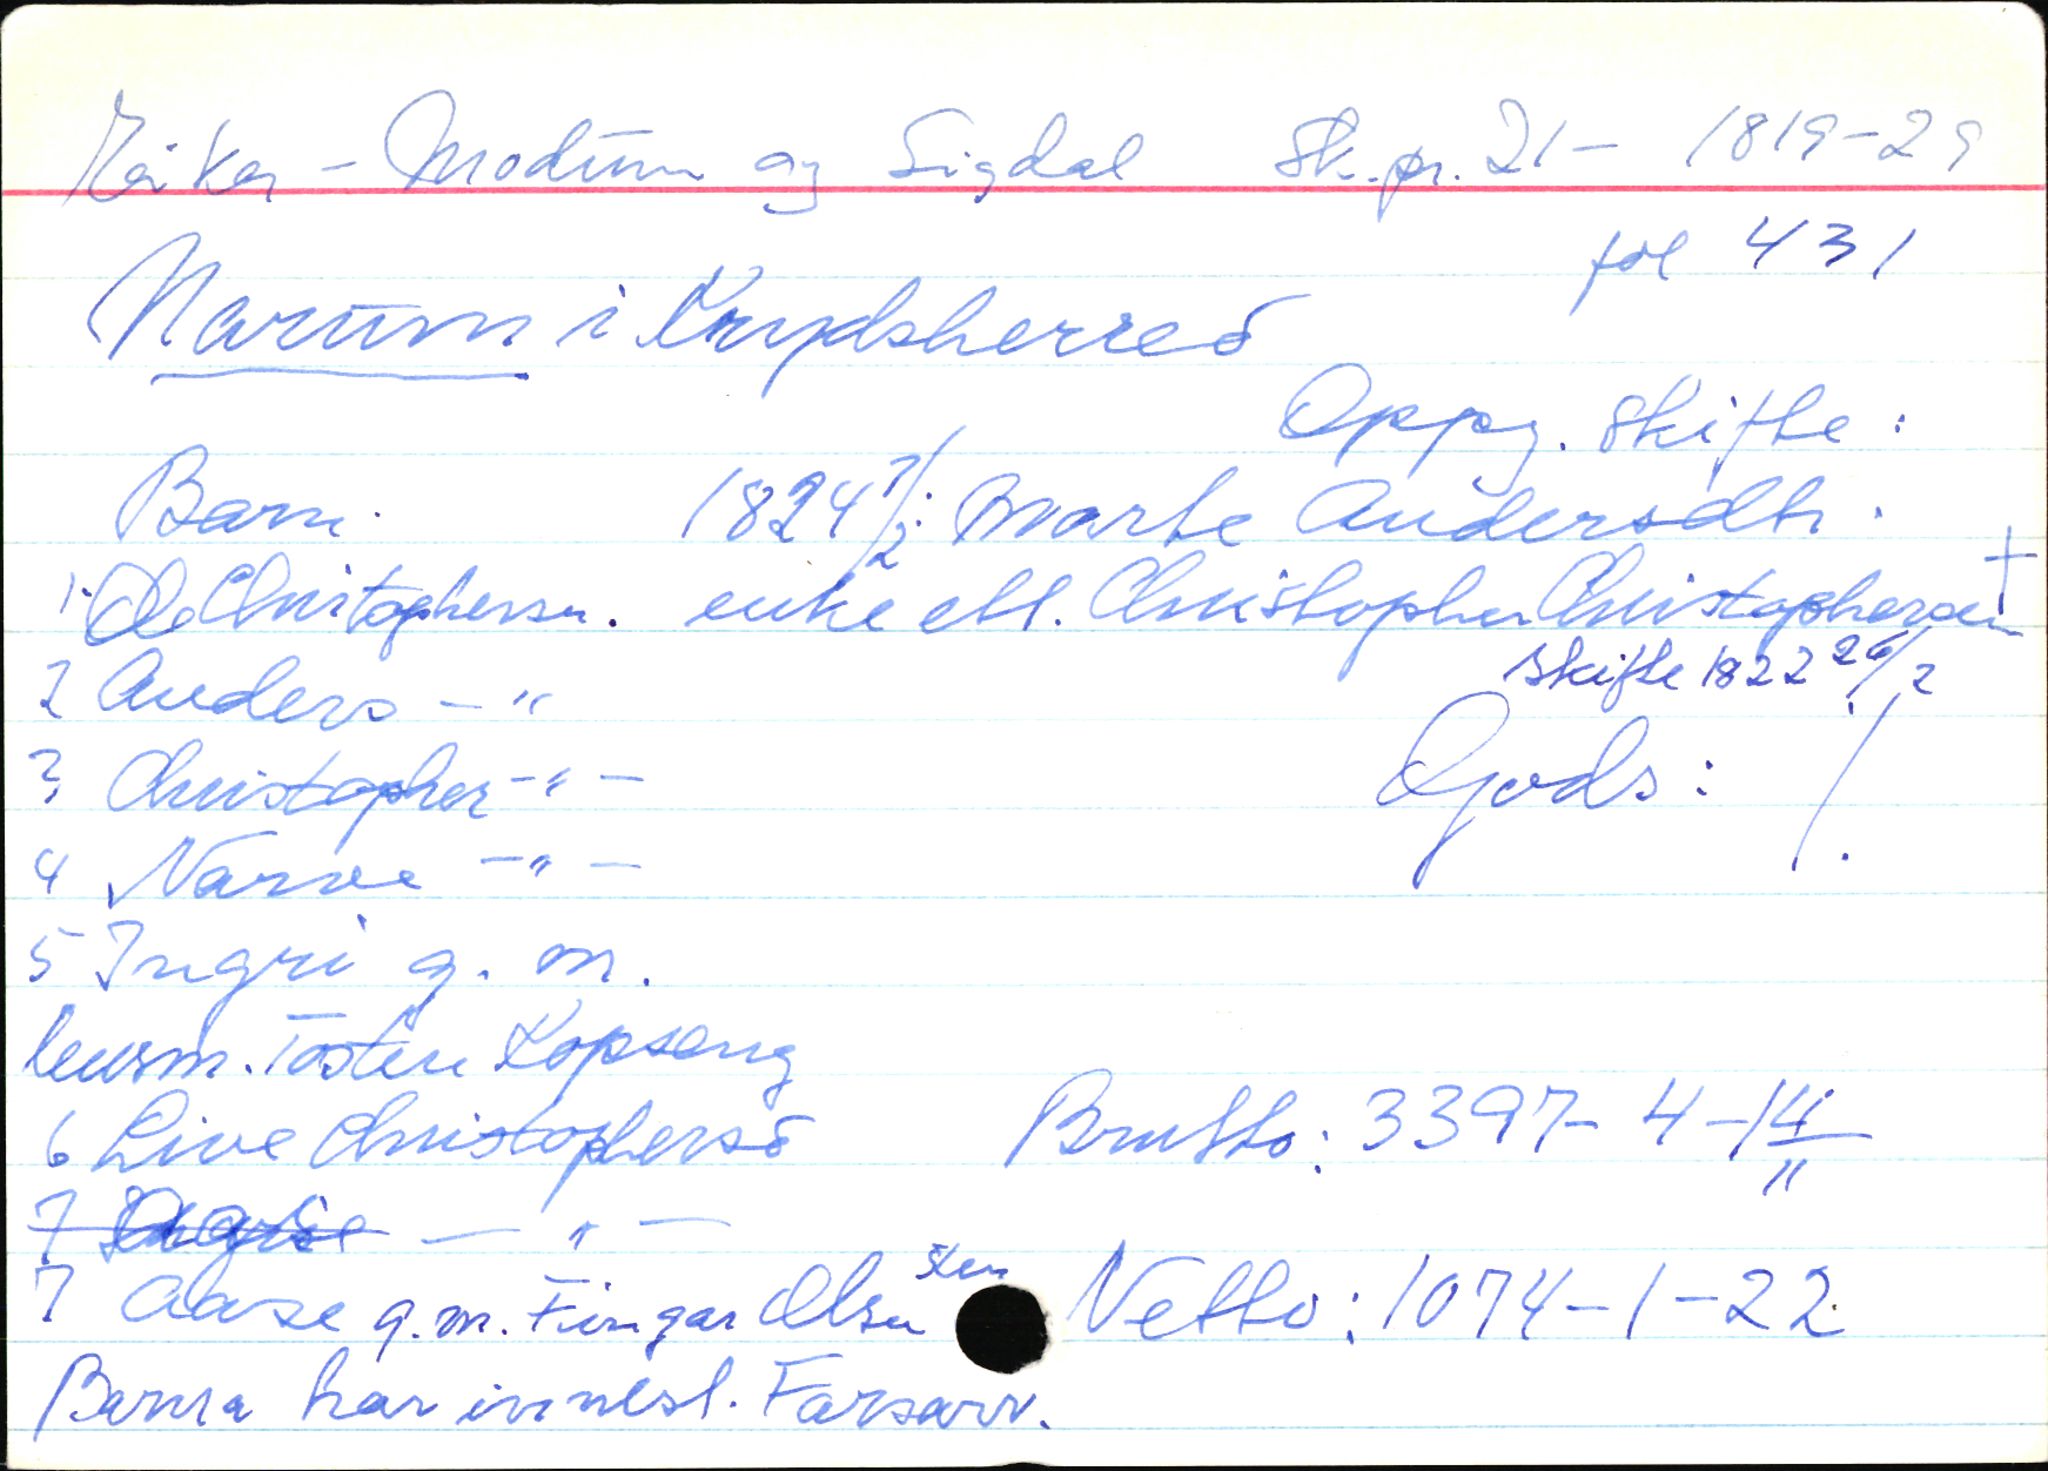 Eiker - Modum og Sigdal Sk.pr. 21 - 1819-29
fol 431
Narum i Krydsherred
Oppg. skifte:
Barn: 1824 7/2: Marte Andersdtr.
1. Ole Christophersen. enke ett. Christopher Christophersen †
skifte 1822 26/2
2 Anders - " Gods: /.
3 Christopher - " -
4 Narve - " -
5 Ingri g. m.
leusm. Tosten Kopseng
6 Live Christophersd Brutto: 3397 - 4 - 14
7 — " — "
7 Aase g.m. Fingar Olsen Netto: 1074 - 1 - 22
Barna har innest. Farsarv.